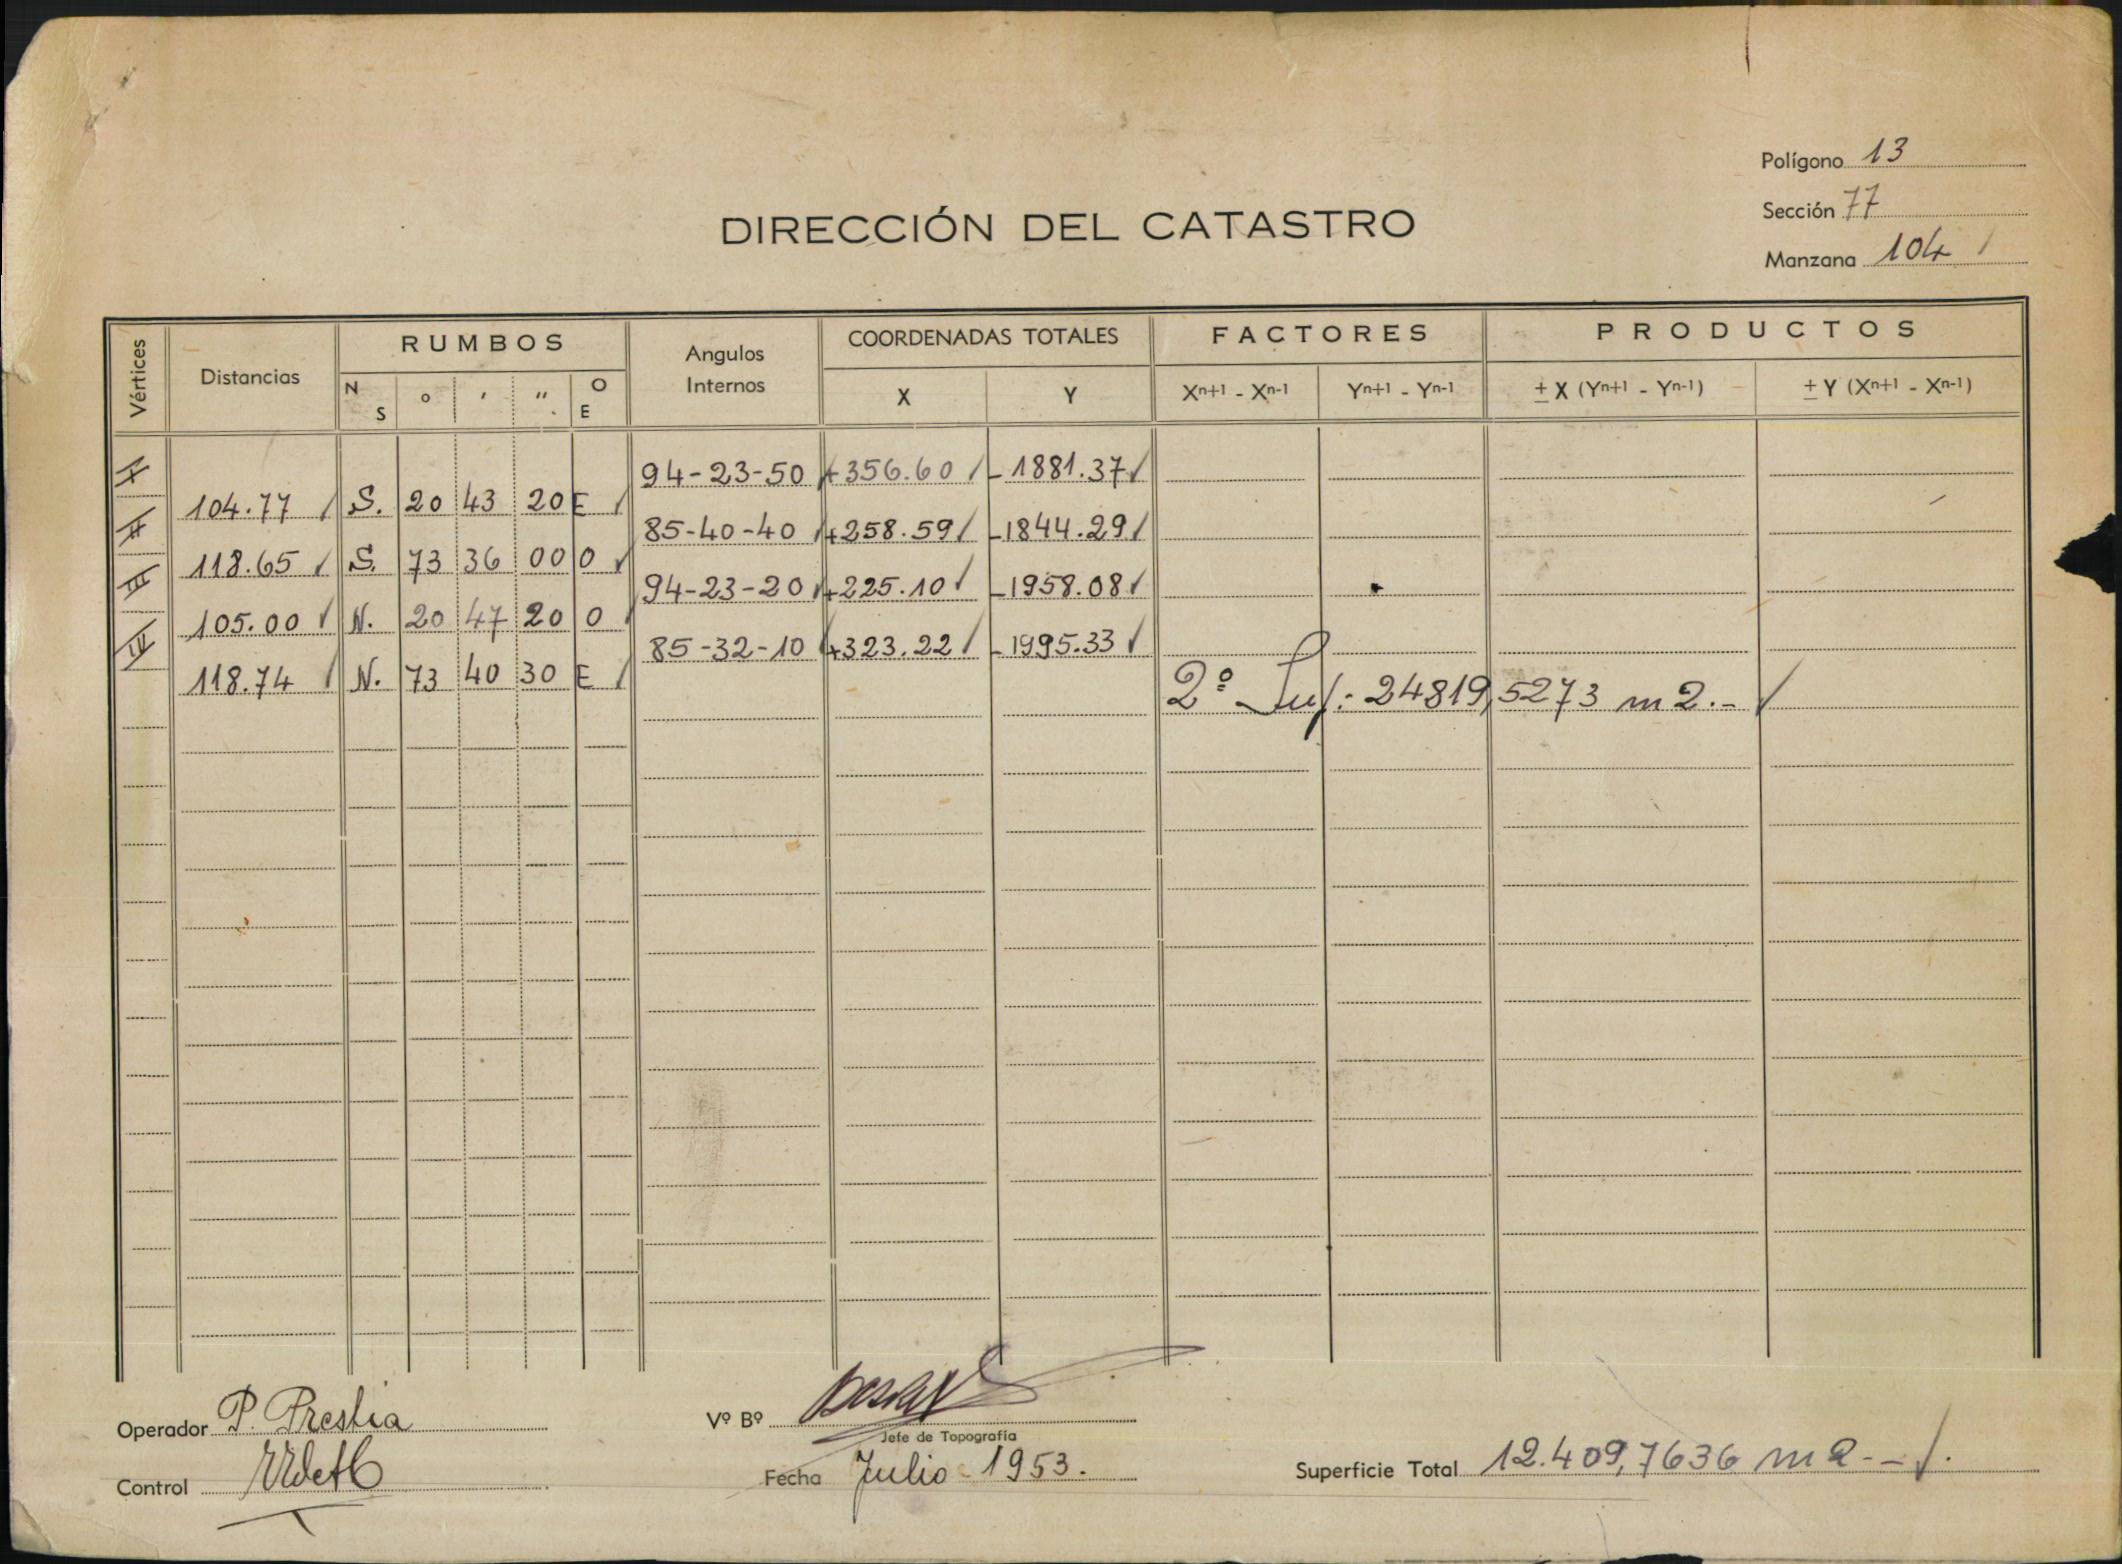 Polígono 13
Sección 77
Manzana 104
DIRECCIÓN DEL CATASTRO
Vértices Distancias RUMBOS Angulos Internos COORDENADAS TOTALES FACTORES PRODUCTOS
N S ° ' '' O E X Y Xn+1 - Xn-1 Yn+1 - Yn-1 ± X (Yn+1 - Yn-1) ± Y (Xn+1 - Xn-1)
I 94-23-50 +356.60 -1881.37
104.77 S. 20 43 20 E
II 85-40-40 +258.59 -1844.29
118.65 S. 73 36 00 O
III 94-23-20 +225.10 -1958.08
105.00 N. 20 47 20 O
IV 85-32-10 +323.22 -1995.33
118.74 N. 73 40 30 E
2º Sup.- 24819,5273 m2.-
Operador P. Prestia
Vº Bº
Jefe de Topografía
Control
Fecha Julio - 1953.
Superficie Total 12.409,7636 m2.-